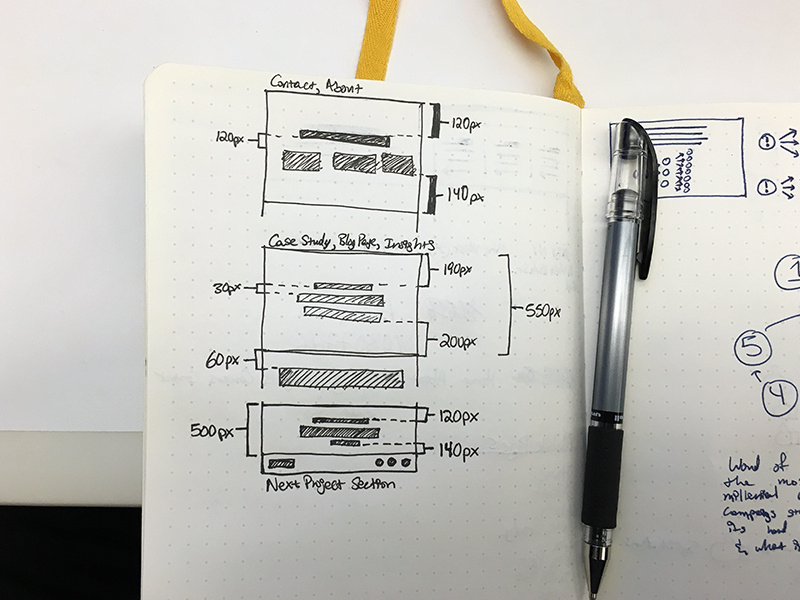 Contact, About
120px
120px
140px
Case Study, Blog Page, Insights
190px
30px
550px
200px
60px
120px
500px
140px
Next Project Section
1
5
4
Word of
the mos
millennial
campaigs
its hard
& what i